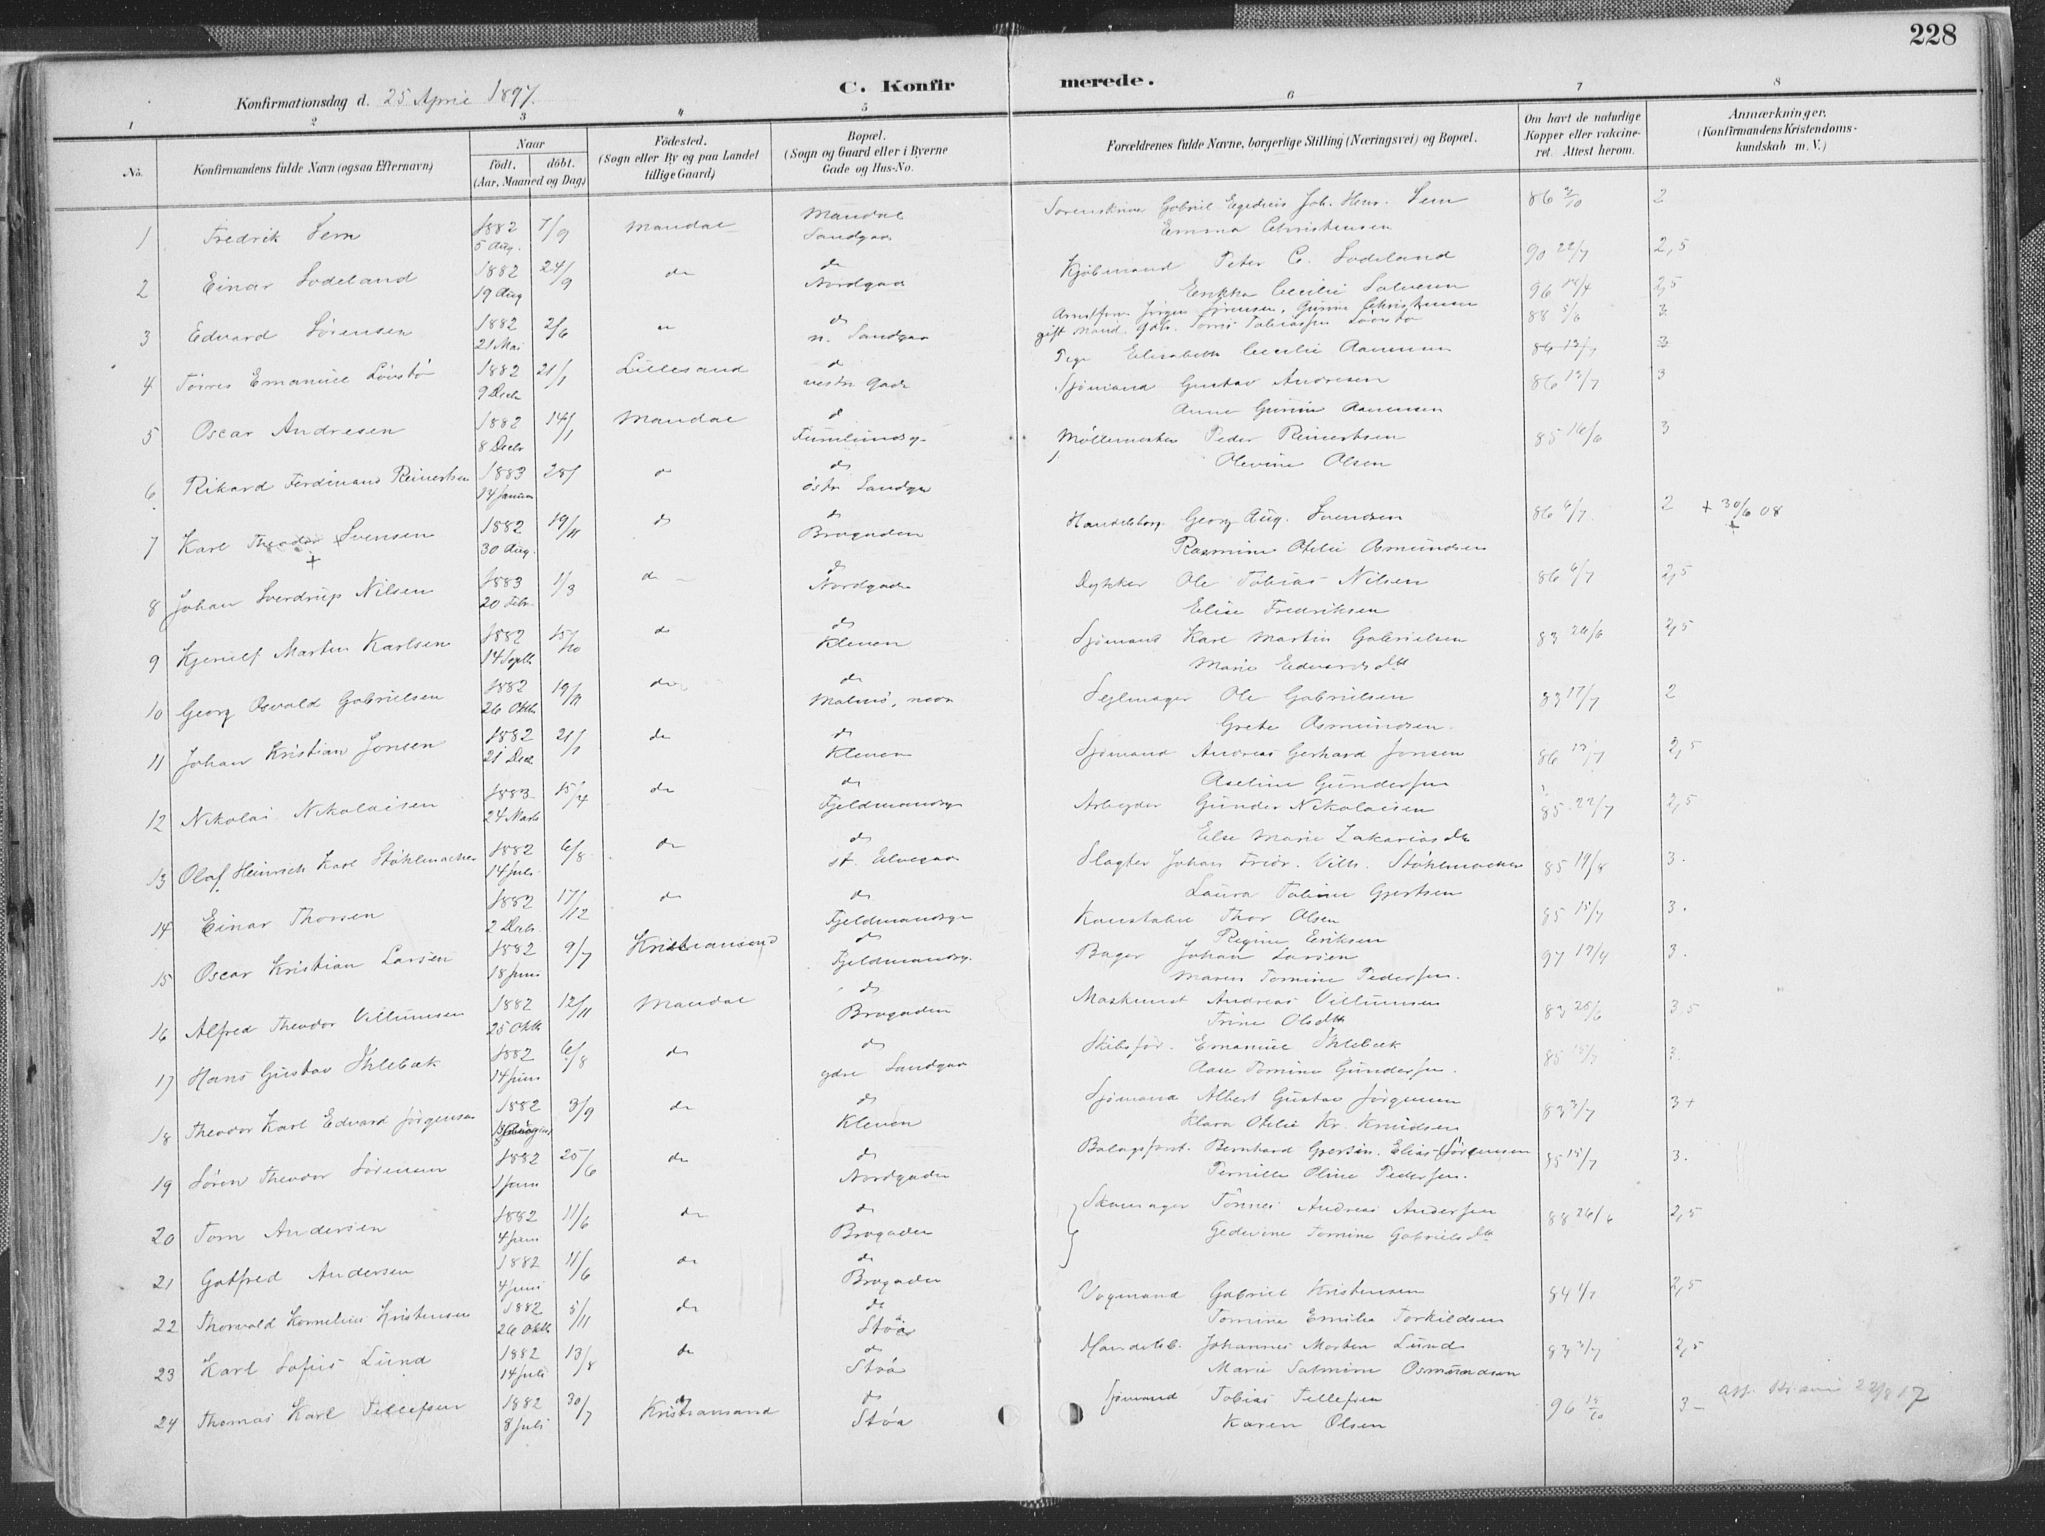 228
C. Konfir merede.
Konfirmationsdag d. 25 April 1897.
1 2 3 4 5 6 7 8
No.
Konfirmandens fulde Navn (ogsaa Efternavn)
Naar
født. døbt.
(Aar, Maaned og Dag)
Fødested.
(Sogn eller By og paa Landet
tillige Gaard)
Bopæl.
(Sogn og Gaard eller i Byerne
Gade og Hus-No.
Forældrenes fulde Navne, borgerlige Stilling (Næringsvei) og Bopæl.
Om havt de naturlige
Kopper eller vakcine-
ret. Attest herom.
Anmærkninger.
(Konfirmandens Kristendoms-
kundskab m. V.)
1 Fredrik Lem 1882 5 Aug. 7/9 Mandal Mandal Sandgaa Sorenskriver Gabriel Joh. Henr. Lem 86 2/10 2
Emma Christensen
2 Einar Lodeland 1882 19 Aug 24/9 do do Nordgaa Kjøbmand Peter C. Lodeland 90 22/7 2,5
Cecilie Salvesen
3 Edvard Sörensen 1882 21 Mai 2/6 do n. Sandgaa Jörgen Sörensen, Gurine Christensen 96 /4 2,5
gift Tobiassen Lövstø 88 5/6 3
4 Törres Emanuel Lövstø 1882 9 Decb 21/1 Lillesand do vestr Gade Pige Elisabeth Cecilie Aanensen 86 13/7 3
5 Oscar Andresen 1882 8 Decbr 14/1 Mandal do Sjömand Gustav Andresen 86 13/7 3
Anne Gurine Aanensen
6 Rikard Ferdinand Reinertsen 1883 14 Januar 28/ do do östr Sandga Möllemester Peder Reinertsen 85 16/6 3
Olevine Olsen
7 Karl Theodor Svensen + 1882 30 Aug. 19/11 do do Brogaden Handelsborg. Georg Aug. Svendsen 86 6/7 2 + 30/6 08 +
Rasmine Otelie Asmundsen
8 Johan Sverdrup Nilsen 1883 20 Febr. 1/3 do do Nordgade Dykker Ole Tobias Nilsen 86 6/7 2,5
Elise Fredriksen
9 Kjenilf Martin Karlsen 1882 14 Septb 15/10 do do Kleven Sjömand Karl Martin Gabrielsen 83 26/6 2,5
Marie Edvardsdtt
10 Georg Osvald Gabrielsen 1882 26 Oktb 19/11 do do Malmö, Sejlmager Ole Gabrielsen 83 17/7 2
Grete Asmundsen.
11 Johan Kristian Jonsen 1882 21 Decb 21/1 do do Kleven Sjömand Andreas Gerhard Jonsen 86 13/7 2,5
Aseline Gundersen
12 Nikolai Nikolaisen 1883 24 Marts 15/4 do do Fjeldmandsg. Arbejder Gunder Nikolaisen 85 22/7 2,5
Else Marie Zakariasdtt
13 Olaf Heinrich Karl Stöhlmacher 1882 14 Juli. 6/8 do do st. Elvegaa Slagter Johan Fridr. Vilh. Stöhlmacher 85 19/8 3.
Laura Tobine Gjertsen
14 Einar Thorsen 1882 2 Decbr. 17/12 do do Fjeldmandsg. Konstabel Thor Olsen 85 15/7 3.
Regine Eriksen
15 Oscar Kristian Larsen 1882 18 Juni 9/7 Kristiansand do Fjeldmandsg. Bager Johan Larsen 97 19/4 3.
Maren Tomine Pedersen.
16 Alfred Theodor Villumsen 1882 25 Oktb 12/11 Mandal do Brogaden Maskinist Andreas Villumsen 83 26/6 3,5
Trine Olsdtt
17 Hans Gustav Uhlebæk 1882 14 Juni 6/8 do do ydre Sandgaa Skibsför. Emanuel Uhlebæk 85 15/7 3.
Aase Tomine Gundersen.
18 Theodor Karl Edvard Jörgensen 1882 3/9 do do Kleven Sjömand Albert Gustav Jörgensen 83 3/7 3+
Klara Otelie Kr. Knudsen
19 Sören Theodor Sörensen 1882 1 Juni 25/6 do do Nordgaden Bolagsforst. Bernhard Elias Sörensen 85 15/7 3.
Pernille Oline Pedersen.
20 Tom Andersen 1882 4 Juni 11/6 do do Brogaden Skomager Tönnes Andreas Andersen 88 26/6 2,5
Gedevine Tomine Gabrielsdtt
21 Gotfred Andersen 1882 4 Juni 11/6 do do Brogaden
22 Thorvald Kornelius Kristensen 1882 26 Oktb 5/11 do do Stöa Vogmand Gabriel Kristensen 84 1/7 2,5
Tomine Emilie Torkildsen
23 Karl Sofus Lund 1882 14 Juli 13/8 do do Stöa Handelsb. Johannes Morten Lund 83 3/7 2,5
Marie Salmine Osmundsen
24 Thomas Karl Tellefsen 1882 8 Juli 30/7 Kristiansand do Stöa Sjömand Tobias Tellefsen 96 15/10 3–
Karen Olsen